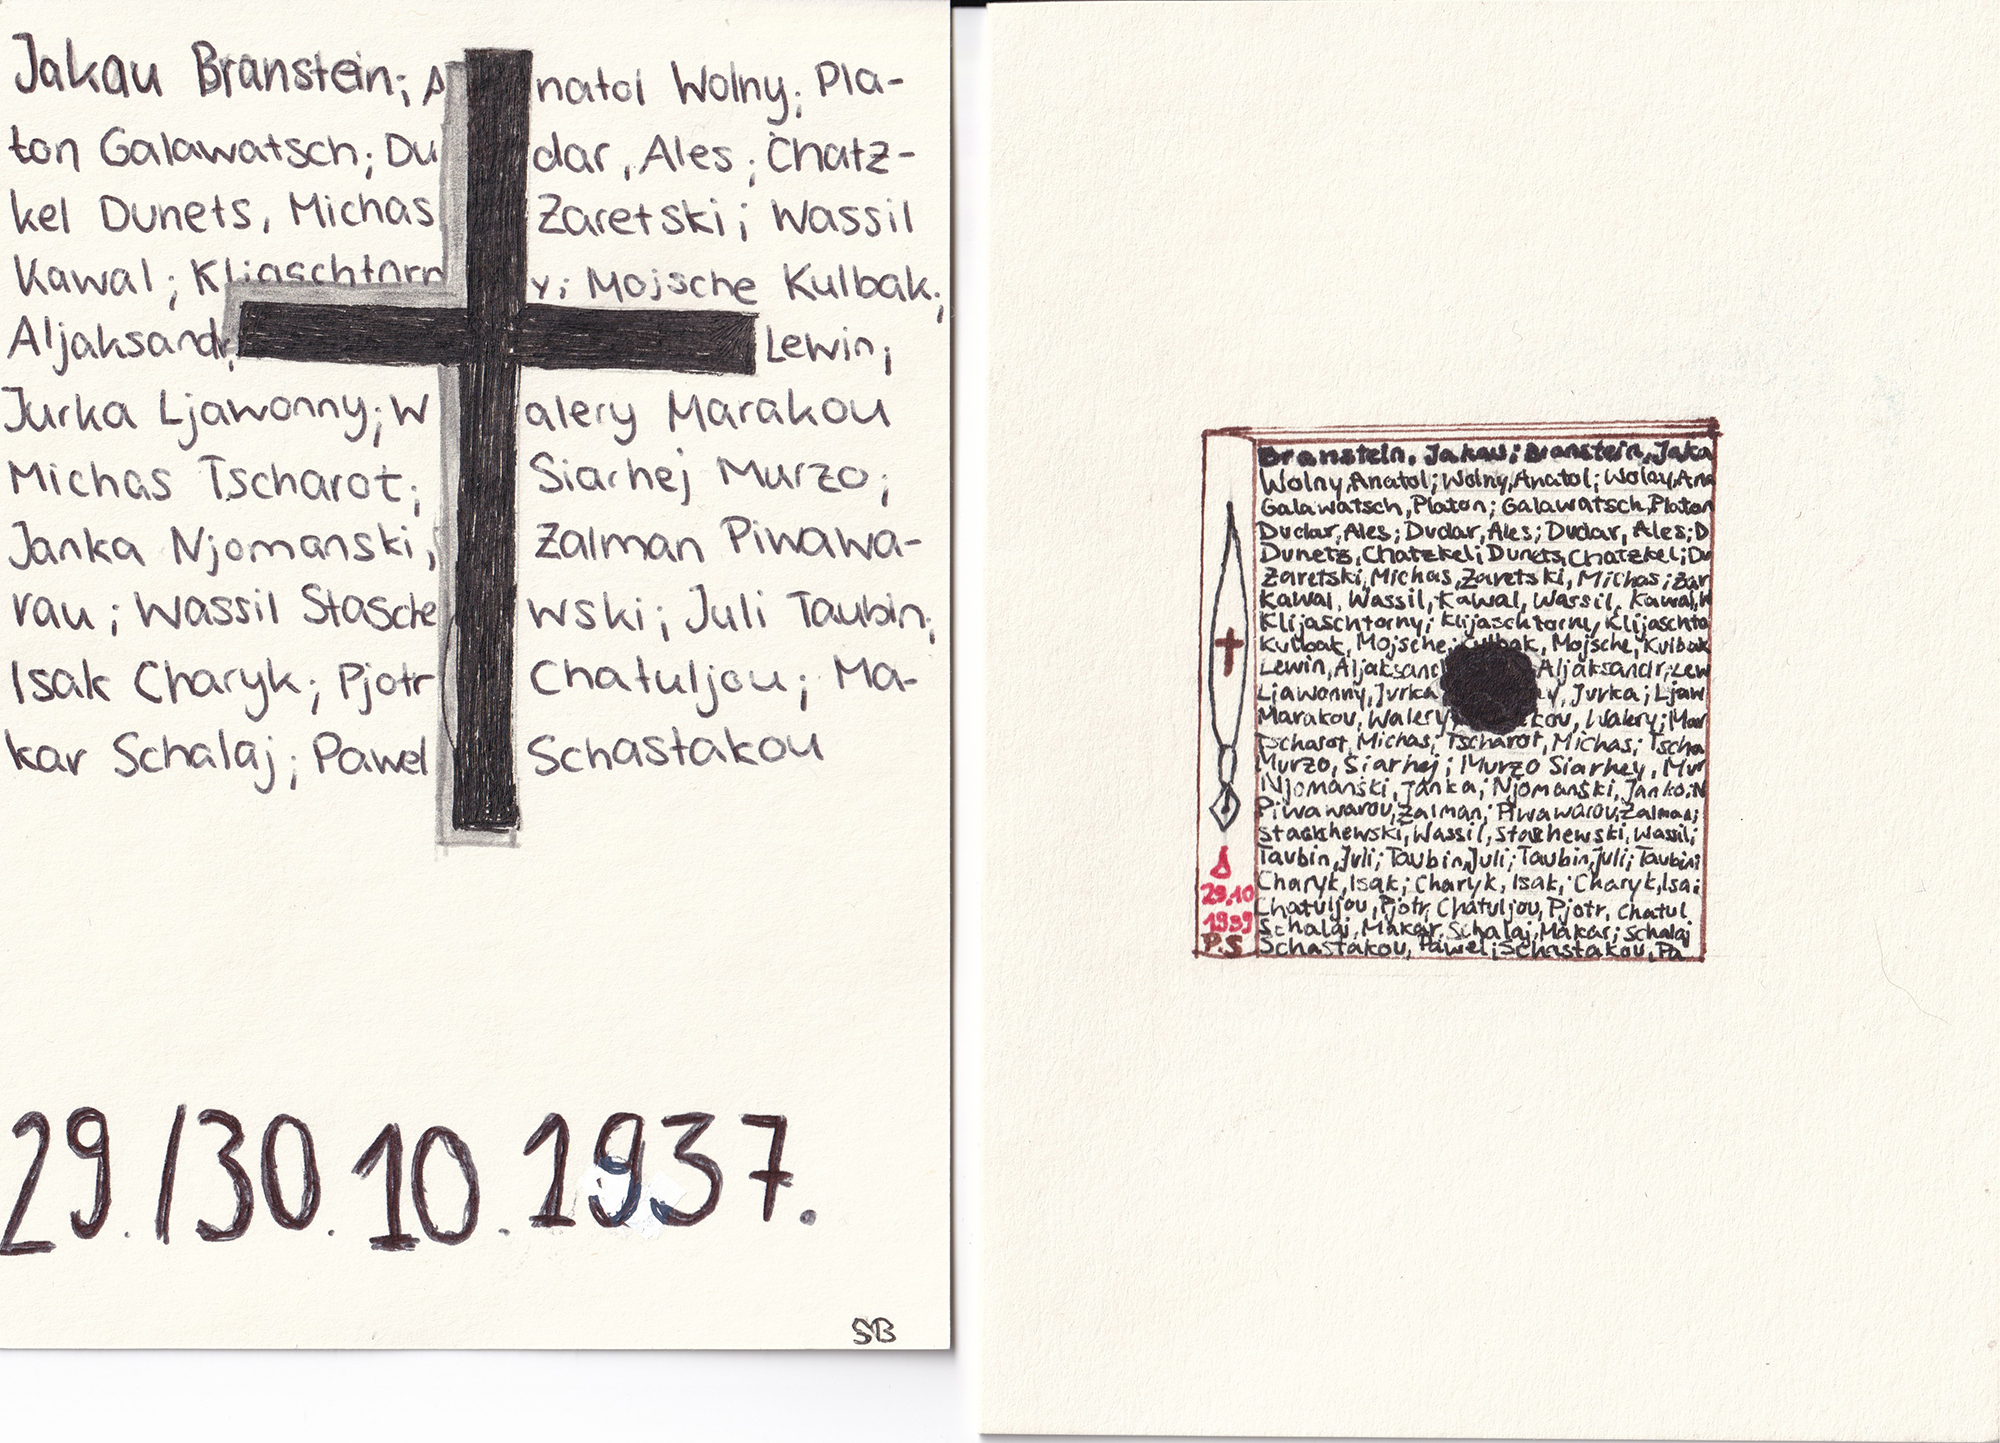 Jakau Branstein; Anatol Wolny; Pla-
ton Galawatsch; Dudar, Ales; Chatz-
kel Dunets, Michas Zaretski; Wassil
Kawal; Kliaschtorny; Mojsche Kulbak;
Aljaksandr Lewin;
Jurka Ljawonny; Walery Marakou
Michas Tscharot; Siarhej Murzo;
Janka Njomanski; Zalman Piwawa-
rau; Wassil Staschewski; Juli Taubin;
Isak Charyk; Pjotr Chatuljou; Ma-
kar Schalaj; Pawel Schastakou
29./30.10.1937.
SB
Branstein, Jakau; Branstein, Jaka
Wolny, Anatol; Wolny, Anatol; Wolny, Ana
Galawatsch, Platon; Galawatsch, Platon
Dudar, Ales; Dudar, Ales; Dudar, Ales; D
Dunets, Chatzkel; Dunets, Chatzkel; Du
Zaretski, Michas, Zaretski, Michas; Zar
Kawal, Wassil, Kawal, Wassil, Kawal, W
Klijaschtorny; Klijaschtorny, Klijaschto
Kulbak, Mojsche; Kulbak, Mojsche, Kulbak
Lewin, Aljaksand Aljaksandr; Lew
Ljawonny, Jurka y, Jurka; Ljaw
Marakou, Walery kou, Walery; Mar
Tscharot, Michas; Tscharot, Michas; Tscha
Murzo, Siarhej; Murzo Siarhey, Mur
Njomanski, Janka; Njomanski, Janka; N
Piwawarou, Zalman; Piwawarou, Zalman;
Staschewski, Wassil, Staschewski, Wassil;
Taubin, Juli; Taubin, Juli; Taubin, Juli; Taubin;
Charyk, Isak; Charyk, Isak; Charyk, Isa;
Chatuljou, Pjotr, Chatuljou, Pjotr, Chatul
Schalaj, Makar, Schalaj, Makar; Schalaj
Schastakou, Pawel; Schastakou, Pa
29.10
1939
P.S